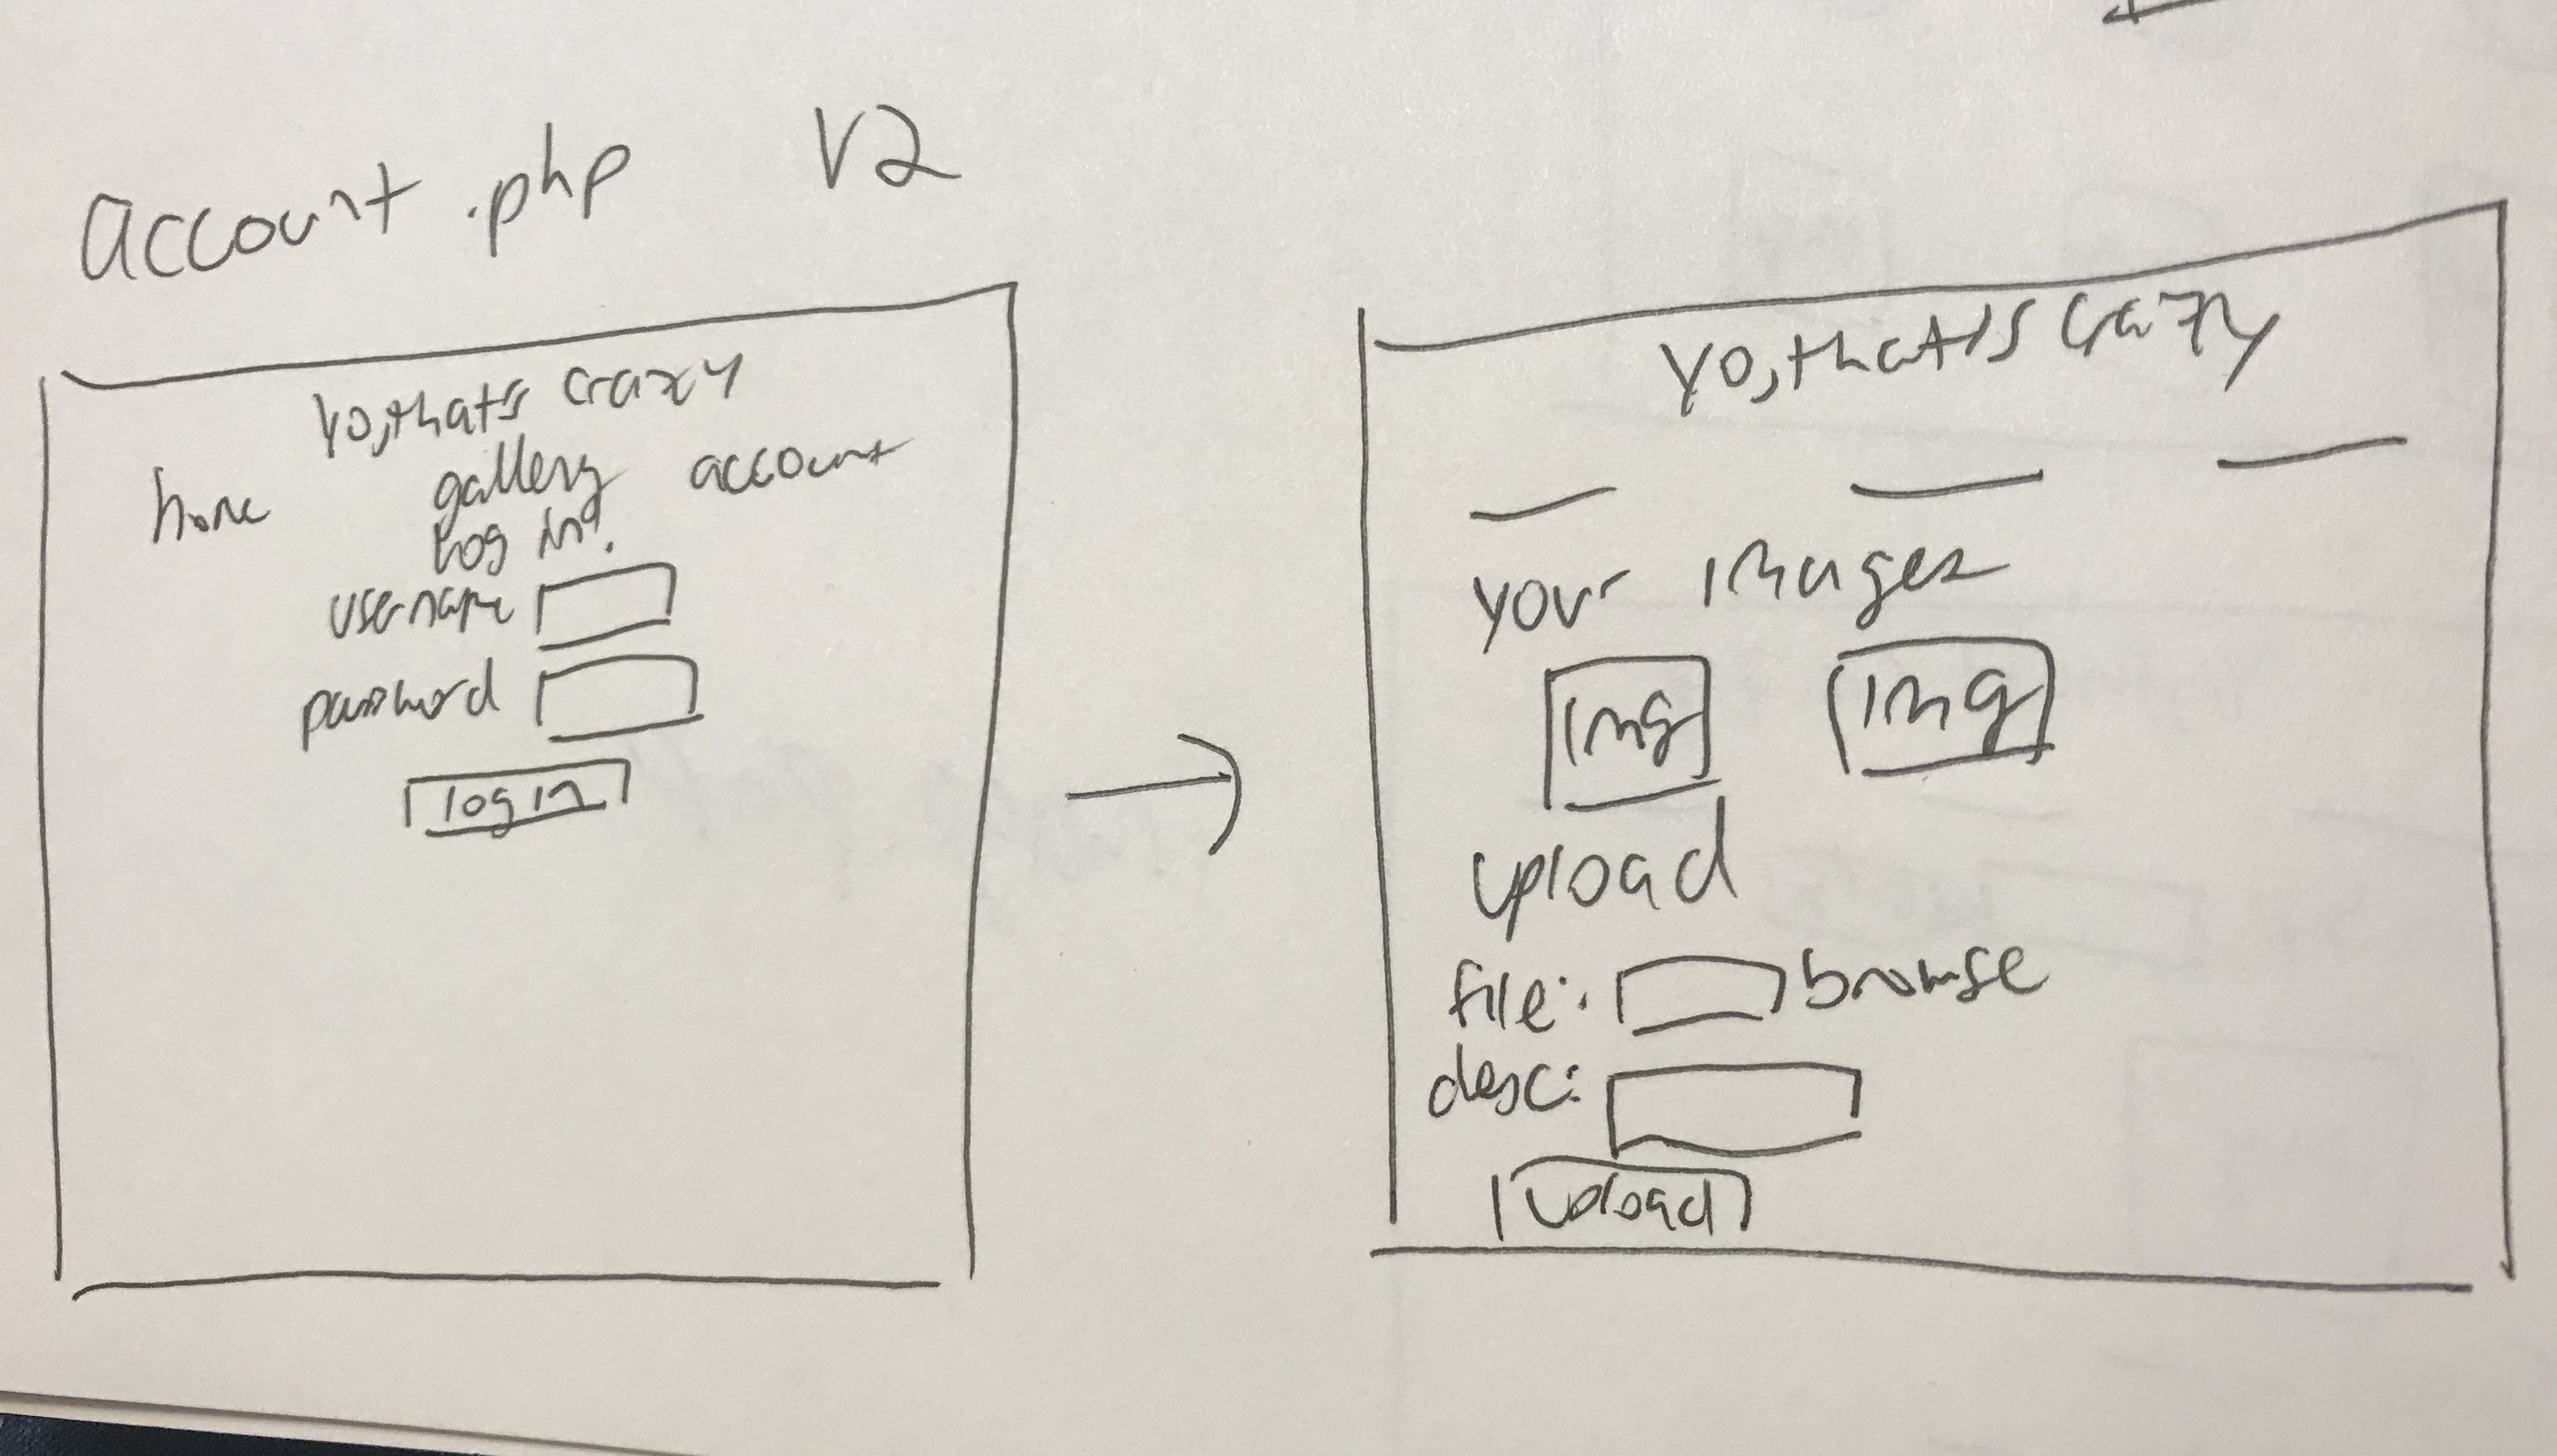 account.php V2
yo, that's crazy
home gallery account
log in!
username
password
log in
yo, that's crazy
your images
img img
upload
file: browse
desc:
upload